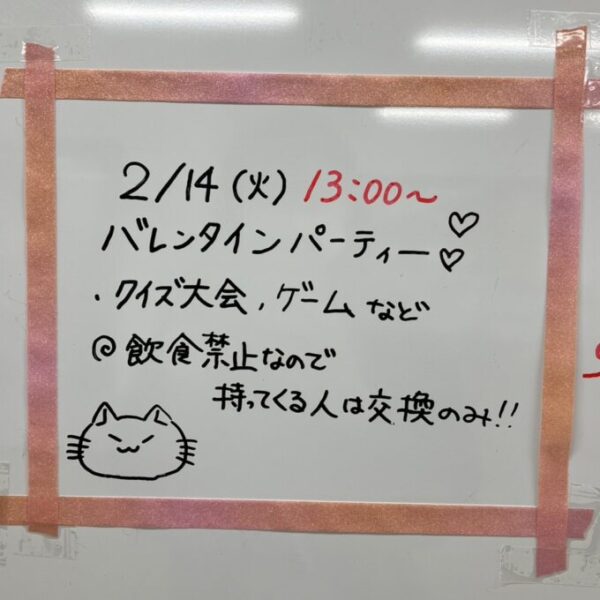 2/14(火) 13:00~
バレンタインパーティー♡♡
・クイズ大会、ゲームなど
◎飲食禁止なので
持ってくる人は交換のみ!!